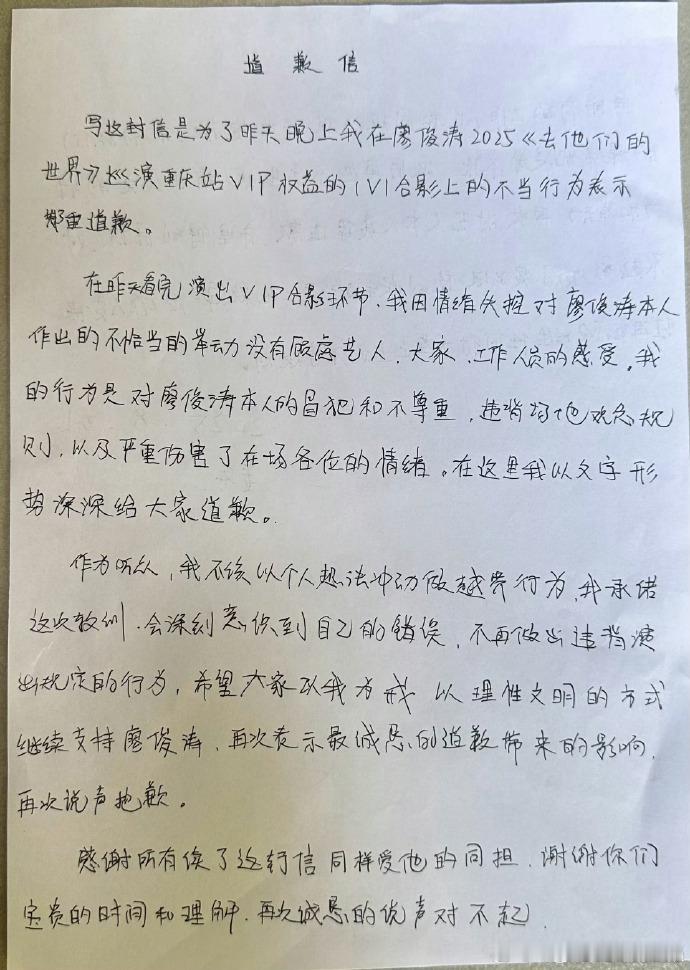 道歉信
写这封信是为了昨天晚上我在廖俊涛2025《去他们的
世界》巡演重庆站VIP权益的1V1合影上的不当行为表示
郑重道歉。
在昨天看完演出VIP合影环节、我因情绪失控对廖俊涛本人
作出的不恰当的举动没有顾虑艺人、大家、工作人员的感受。我
的行为是对廖俊涛本人的冒犯和不尊重，违背场地观念规
则，以及严重伤害了在场各位的情绪。在这里我以文字形
势深深给大家道歉。
作为听众，我不该以个人想法冲动做越界行为，我承诺
这次教训．会深刻意识到自己的错误，不再做出违背演
出规定的行为，希望大家以我为戒 以理性文明的方式
继续支持廖俊涛，再次表示最诚恳的道歉带来的影响，
再次说声抱歉。
感谢所有读了这封信同样爱他的同担．谢谢你们
宝贵的时间和理解．再次诚恳的说声对不起．